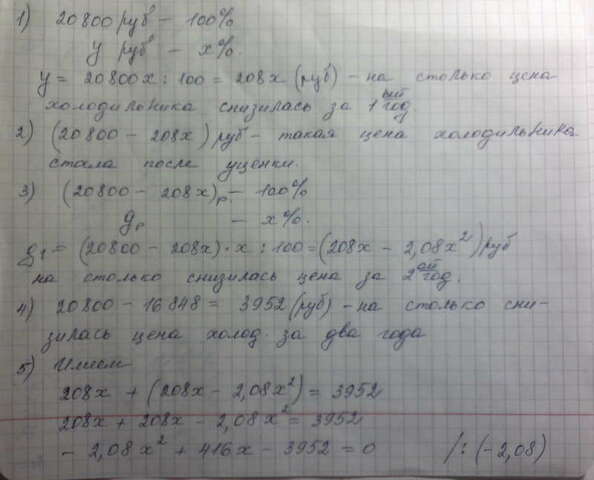 1) 20800 руб - 100%
y руб - x%.
y = 20800x : 100 = 208x (руб) - на столько цена
холодильника снизилась за 1ый год
2) (20800 - 208x) руб - такая цена холодильника
стала после уценки.
3) (20800 - 208x)р - 100%
gр - x%.
g1 = (20800 - 208x)·x : 100 = (208x - 2,08x²) руб
на столько снизилась цена за 2ой год.
4) 20800 - 16848 = 3952 (руб) - на столько сни-
зилась цена холод. за два года
5) Имеем
208x + (208x - 2,08x²) = 3952
208x + 208x - 2,08x² = 3952
- 2,08x² + 416x - 3952 = 0 /: (-2,08)